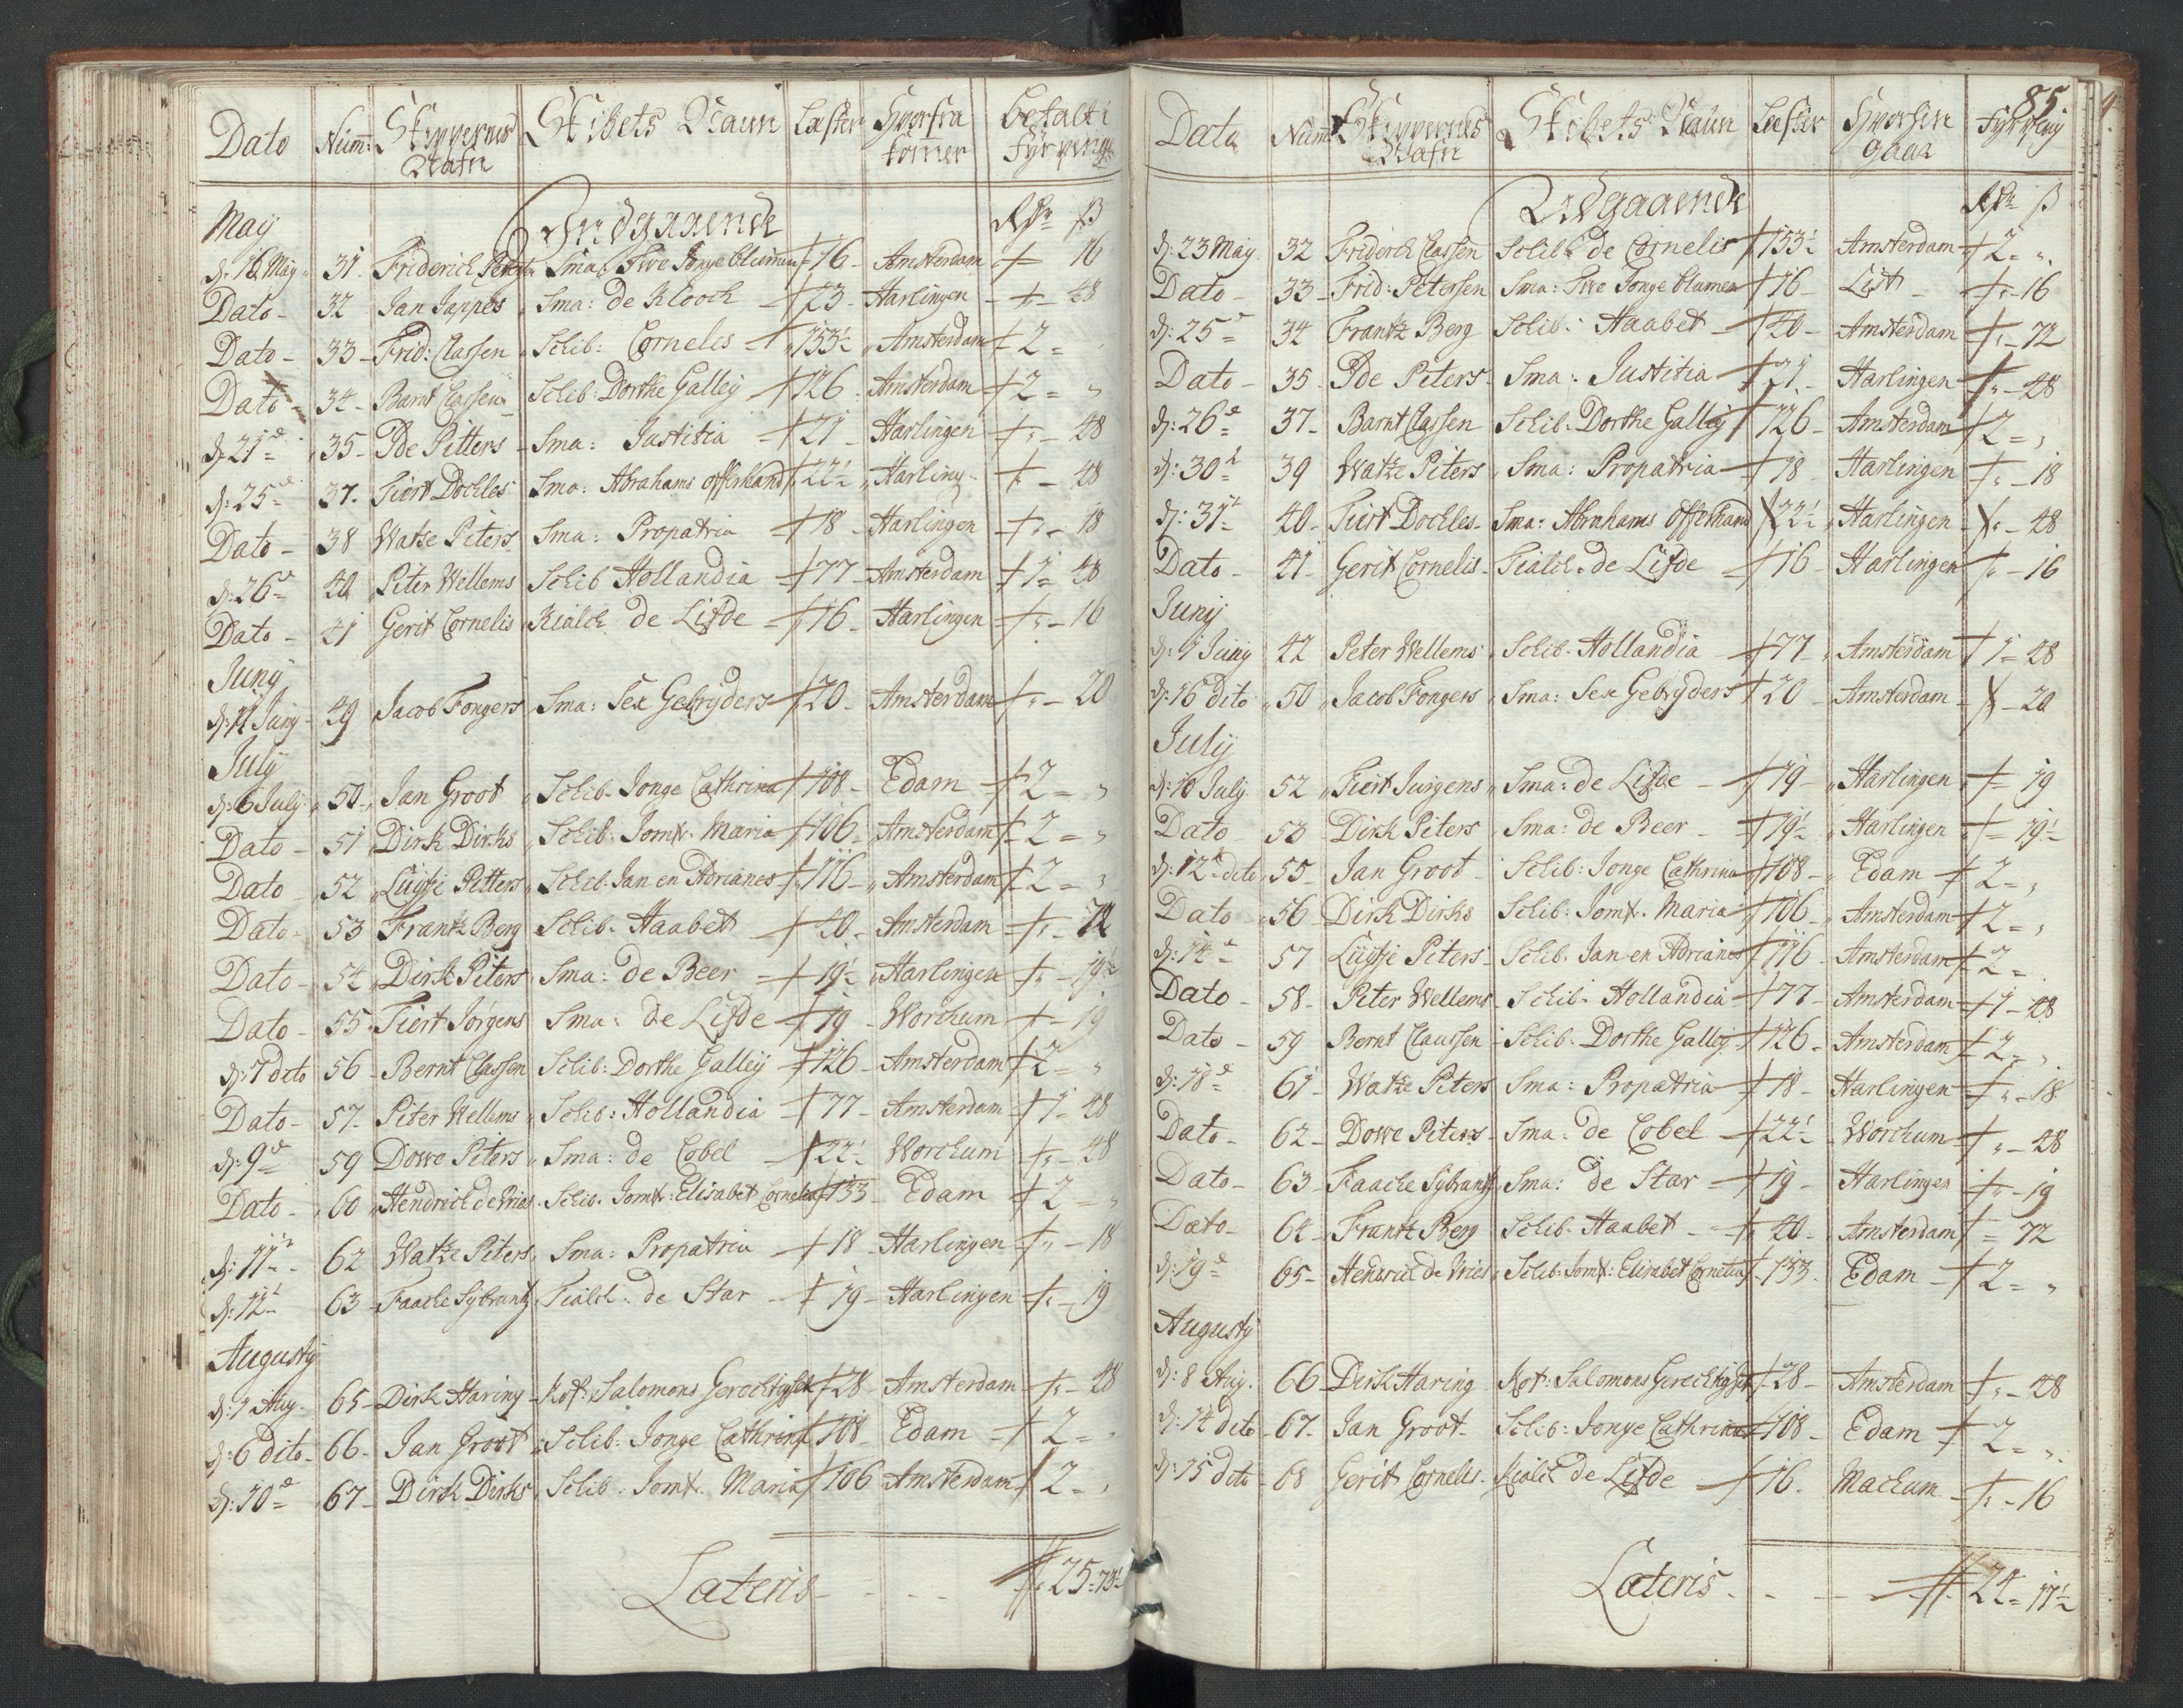 Dato Num: Skippernes Nafn Skibets Naun Læster Hvorfra kommer betalt i Fyrpenge
May Indgaaende Rdr ß
d: 16 May 31 Friderich Petersen Sma: Twe Jonge blumen 16 Amsterdam " 16
Dato 32 Jan Jappes Sma: de Klooch 23 Harlingen " 48
Dato 33 Frid: Classen Schib: Cornelis 153½ Amsterdam 2 "
Dato 34 Barnt Classen Schib: Dorthe Galley 126 Amsterdam 2 "
d: 21de 35 Ide Pitters Sma: Justitia 21 Harlingen " 48
d: 25de 37 Tiert Dockles Sma: Abrahams Offerhand 22½ Harling. " 48
Dato 38 Watze Piters Sma: Propatria 18 Harlingen " 18
d: 26de 40 Piter Willems Schib Hollandia 77 Amsterdam 1 48
Dato 41 Gerit Cornelis Kialck de Lifde 16 Harlingen " 16
Juny
d: 11 Juny 49 Jacob Fongers Sma: Sex Gebryders 20 Amsterdam " 20
July
d: 6 July 50 Jan Groot Schib. Jonge Cathrina 108 Edam 2 "
Dato 51 Dirk Dirks Schib. Jomf. Maria 106 Amsterdam 2 "
Dato 52 Luytje Pitters Schib. Jan en Adrianes 116 Amsterdam 2 "
Dato 53 Frantz Berg Schib. Haabet 40 Amsterdam " 72
Dato 54 Dirk Piters Sma: de Beer 19½ Harlingen " 19½
Dato 55 Tiert Jörgens Sma: de Lifde 19 Worchum " 19
d: 7 dito 56 Bernt Classen Schib: Dorthe Galley 126 Amsterdam 2 "
Dato 57 Piter Wellems Schib: Hollandia 77 Amsterdam 1 48
d: 9de 59 Dowe Piters Sma: de Cobel 22½ Worchum " 48
Dato 60 Hendrich de Vries Schib. Jomf: Elisabet Cornelia 133 Edam 2 "
d: 11te 62 Watze Piters Sma: Propatria 18 Harlingen " 18
d: 12t 63 Faache Sybrantz Tialck: de Star 19 Harlingen " 19
Augusty
d: 1 Aug. 65 Dirk Haring Kof: Salomons Gerechtighed 28 Amsterdam " 48
d: 6 dito 66 Jan Groot Schib: Jonge Cathrina 108 Edam 2 "
d: 10de 67 Dirk Dirks Schib. Jomf. Maria 106 Amsterdam 2 "
Lateris 25 73½
85.
Dato Num: Skippernes Nafn Skibets Naun Læster Hvorhen gaar Fyrpeng
Udgaaende Rdr ß
d: 23 May 32 Friderich Classen Schib: de Cornelis 153½ Amsterdam 2 "
Dato 33 Frid: Petersen Sma: Twe Jonge blumen 16 List " 16
d: 25de 34 Frantz Berg Schib: Haabet 40 Amsterdam " 72
Dato 35 Ide Peters Sma: Justitia 21 Harlingen " 48
d: 26de 37 Barnt Classen Schib: Dorthe Galley 126 Amsterdam 2 "
d: 30t 39 Watze Piters Sma: Propatria 18 Harlingen " 18
d: 31t 40 Tiert Dockles Sma: Abrahams Offerhand 22½ Harlingen " 48
Dato 41 Gerit Cornelis Tialck de Lifde 16 Harlingen " 16
Juny
d: 1 Juny 42 Peter Wellems Schib. Hollandia 77 Amsterdam 1 48
d: 16 dito 50 Jacob Fongers Sma: Sex Gebryders 20 Amsterdam " 20
July
d: 10 July 52 Tiert Jurgens Sma: de Lifde 19 Harlingen " 19
Dato 53 Dirk Piters Sma: de Beer 19½ Harlingen " 19½
d: 12te dito 55 Jan Groot Schib: Jonge Cathrina 108 Edam 2 "
Dato 56 Dirk Dirks Schib: Jomf. Maria 106 Amsterdam 2 "
d: 14de 57 Luytje Piters Schib. Jan en Adrianes 116 Amsterdam 2
Dato 58 Piter Wellems Schib: Hollandia 77 Amsterdam 1 48
Dato 59 Bernt Claussen Schib. Dorthe Galley 126 Amsterdam 2 "
d: 18de 61 Watze Piters Sma: Propatria 18 Harlingen " 18
Dato 62 Dowe Piters Sma: de Cobel 22½ Worchum " 48
Dato 63 Faache Sybrantz Sma: de Star 19 Harlingen " 19
Dato 64 Frantz Berg Schib. Haabet 40 Amsterdam " 72
d: 19de 65 Hendrich de Vries Schib: Jomf: Elisabet Cornelia 133 Edam 2 "
Augusty
d: 8 Aug. 66 Dirk Haring Kof: Salomons Gerechtighed 28 Amsterdam " 48
d: 14 dito 67 Jan Groot Schib: Jonge Cathrina 108 Edam 2 "
d: 15 dito 68 Gerit Cornelis Kialck de Lifde 16 Mackum " 16
Lateris 24 17½